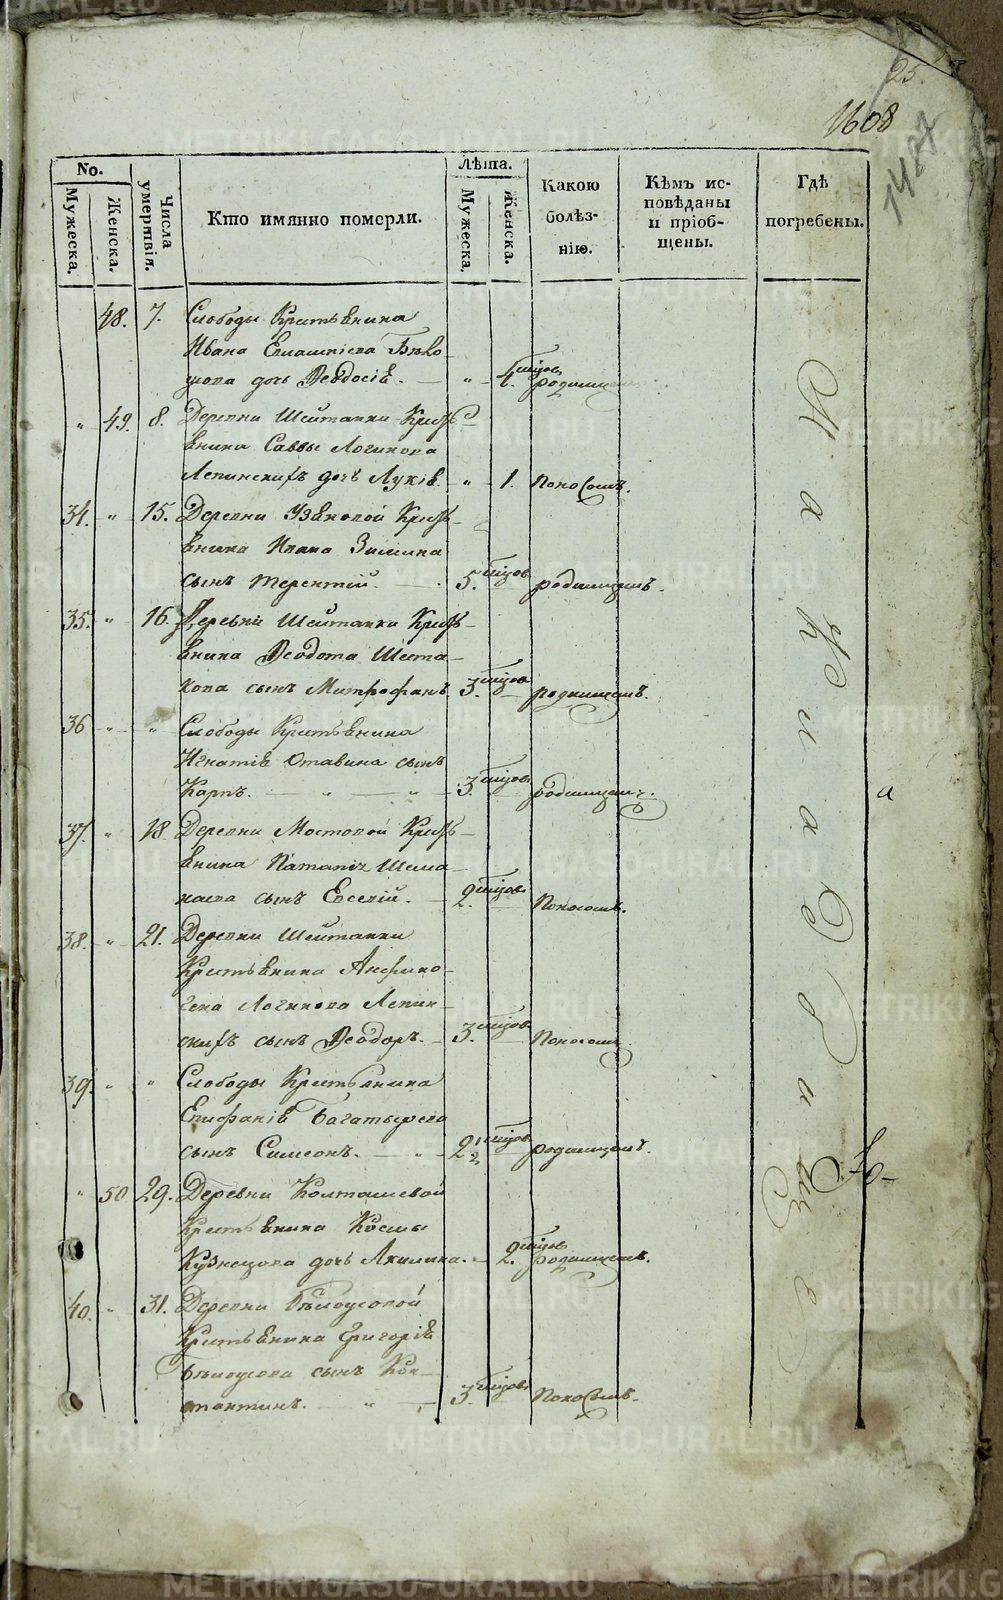 25.
1608
1487
No.
Мужеска.
Женска.
Числа умертвія.
Кто имянно померли.
Лѣта.
Мужеска.
Женска.
Какою болѣзнію.
Кѣмъ исповѣданы и пріобщены.
Гдѣ погребены.
48. 7. Слободы Крестьянина
Ивана
дочь Ѳеодосія. — „ 1. мѣсяцовъ родимцемъ
„ 49. 8. Деревни Шейтанки Кресть-
янина Саввы Логинова
Лепинскихъ дочь Лукія. „ 1. Поносомъ.
34. „ 15. Деревни Узяновой Кресть-
янина Ивана Зимина
сынъ Терентій. — 5. мѣсяцовъ родимцемъ.
35. „ 16. Деревни Шейтанки Кресть-
янина Ѳеодота Шеста-
кова сынъ Митрофанъ 3. мѣсяцовъ родимцемъ.
36 „ „ Слободы Крестьянина
Игнатія Отавина сынъ
Карпъ. — „ — „ — 3. мѣсяцовъ родимцемъ.
37. „ 18 Деревни Мостовой Кресть-
янина
сынъ Евсевій. — 2. мѣсяцовъ Поносомъ.
38. „ 21. Деревни Шейтанки
Крестьянина Анфино-
гена Логинова Лепин-
скихъ сынъ Ѳеодоръ. — 3. мѣсяцовъ Поносомъ.
39. „ „ Слободы Крестьянина
Епифанія Багатырева
сынъ Симеонъ. — „ — 2 1/2 мѣсяцовъ родимцемъ.
„ 50 29. Деревни Колташевой
Крестьянина Косьмы
Кузнецова дочь Акилина. — 2. мѣсяцов родимцемъ.
40. „ 31. Деревни Бѣлоусовой
Крестьянина Григорія
Бѣлоусова сынъ Кон-
стантинъ. „ — 3. мѣсяцовъ Поносомъ.
На кладбище
а
METRIKI.GASO-URAL.RU